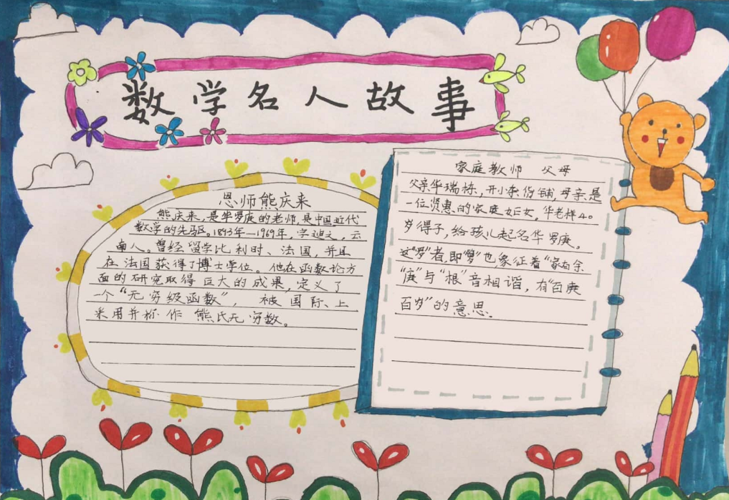 数学名人故事
恩师熊庆来
熊庆来,是华罗庚的老师,是中国近代
数学的先驱。1893年—1969年,字迪之,云
南人。曾经留学比利时、法国,并且
在法国获得了博士学位。他在函数论方
面的研究取得巨大的成果,定义了
一个“无穷级函数”,被国际上
采用并称作熊氏无穷数。
家庭教师 父母
父亲华瑞栋,开小杂货铺,母亲是
一位贤惠的家庭妇女,华老祥40
岁得子,给孩儿起名华罗庚。
“罗”者,即“箩”也象征着“家有余
“庚”与“根”音相谐,有“百庚
百岁”的意思。